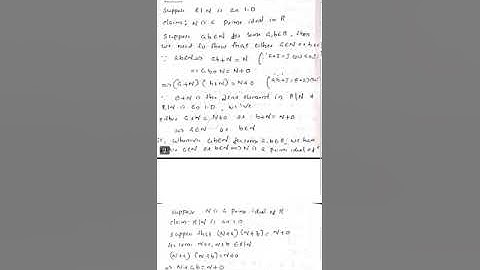 Suppose R|N is an I.D
claim: N is a prime ideal in R
Suppose abεN for some a,bεR, then
we need to show that either aεN or bεN
∵ abεN ⇒ ab+N = N
⇒ ab+N = N+0
⇒ (a+N) (b+N) = N+0
∵ 0+N is the zero element in R|N &
R|N is an I.D, we've
either a+N = N+0 or b+N = N+0
⇒ aεN or bεN
whenever abεN for some a,bεR, we have
aεN or bεN ⇒ N is a prime ideal of
Suppose N is a prime ideal of R
claim: R|N is an I.D
Suppose that (N+a) (N+b) = N+0
for some N+a, N+b εR|N
(N+a) (N+b) = N+0
⇒ N+ab = N+0